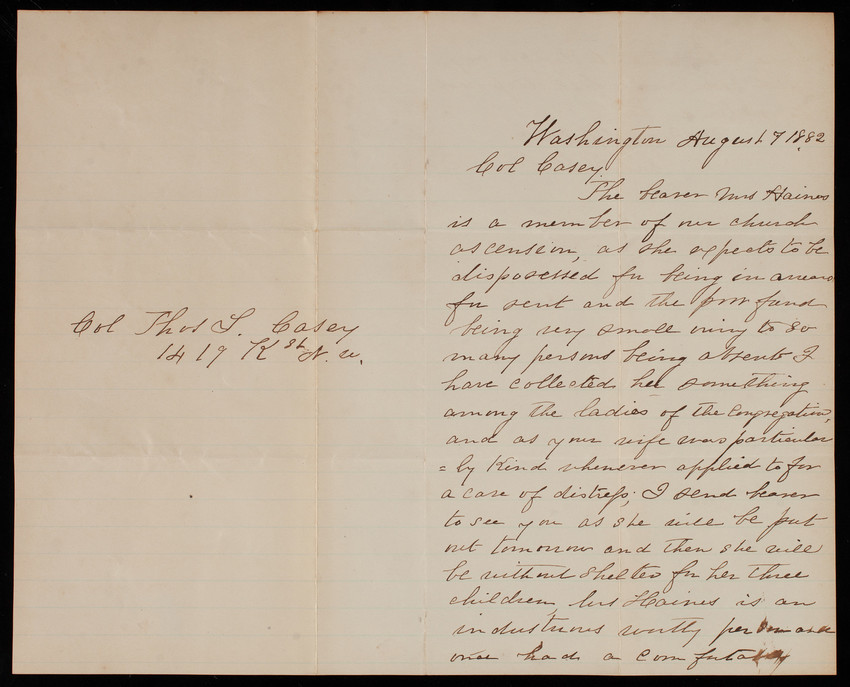 Col Thos L. Casey
1419 K St N. W.
Washington August 7 1882
Col Casey
The bearer Mrs Haines
is a member of our church
ascension, as she expects to be
dispossessed for being in arrears
for rent and the poor fund
being very small owing to so
many persons being absent I
have collected her something
among the ladies of the Congregation,
and as your wife was particular
=ly Kind whenever applied to for
a case of distress; I send bearer
to see you as she will be put
out tomorrow and then she will
be without shelter for her three
children, Mrs Haines is an
industrious worthy person and
once had a comfortable